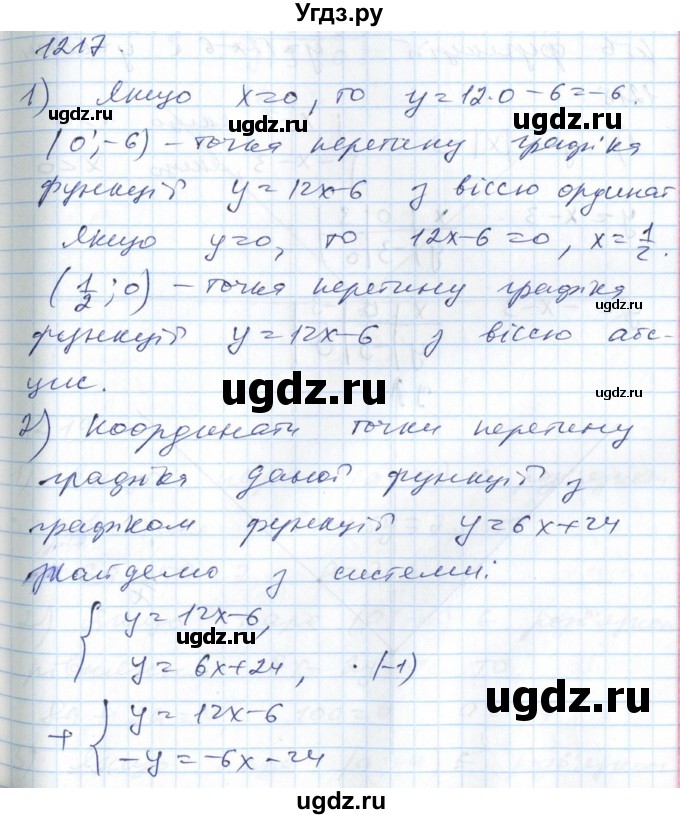 Угдз.ру
1217.
1) Якщо x=0, то y=12·0-6=-6.
(0;-6) - точка перетину графіка
функції y=12x-6 з віссю ординат
Якщо y=0, то 12x-6=0, x=1/2.
(1/2;0) - точка перетину графіка
функції y=12x-6 з віссю абс-
цис.
2) Координати точки перетину
графіка даної функції з
графіком функції y=6x+24
знайдемо з системи:
{ y=12x-6,
y=6x+24, ·(-1)
+ { y=12x-6
-y=-6x-24
ugdz.ru
ugdz.ru
ugdz.ru
ugdz.ru
ugdz.ru
ugdz.ru
ugdz.ru
ugdz.ru
ugdz.ru
ugdz.ru
ugdz.ru